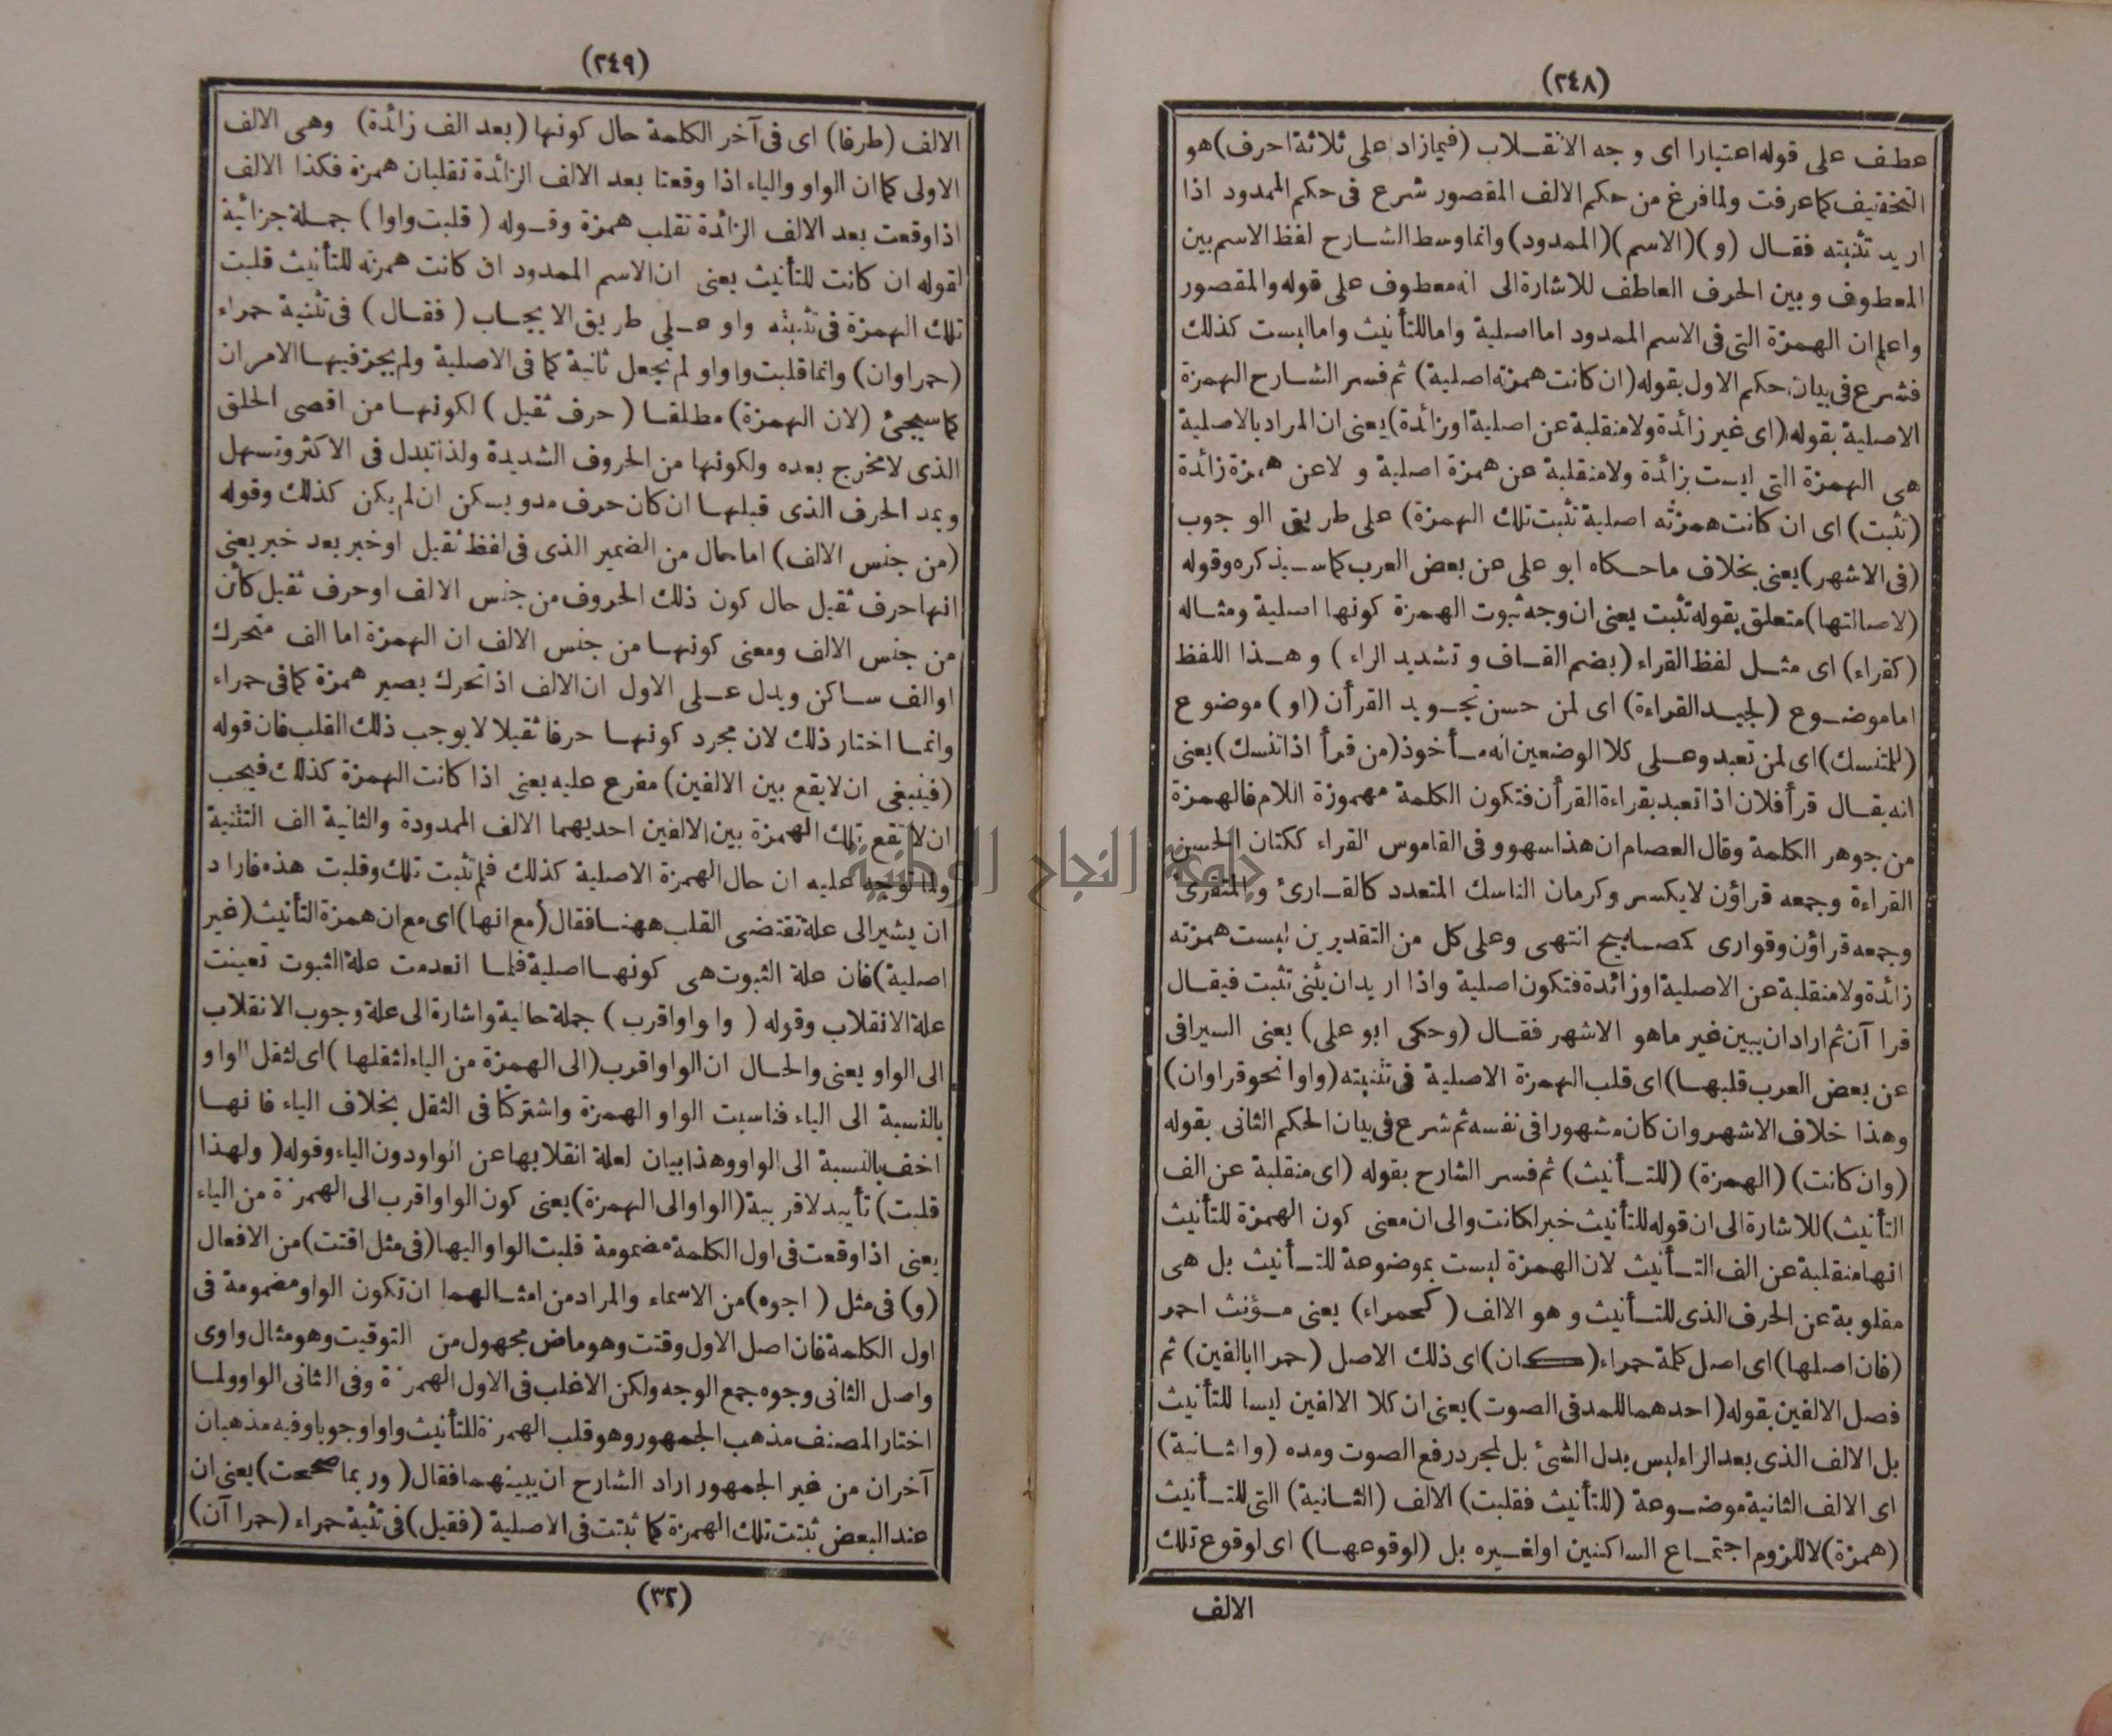 (٢٤٨)
عطف على قوله اعتبارا اى وجه الانقلاب (فيمازاد على ثلاثة احرف) هو
التخفيف كما عرفت ولما فرغ من حكم الالف المقصور شرع فى حكم الممدود اذا
اريد تثنيته فقال (و) (الاسم) (الممدود) وانما وسط الشارح لفظ الاسم بين
المعطوف وبين الحرف العاطف للاشارة الى انه معطوف على قوله والمقصور
واعلم ان الهمزة التى فى الاسم الممدود اما اصلية واما للتأنيث واما ليست كذلك
فشرع فى بيان حكم الاول بقوله (ان كانت همزته اصلية) ثم فسر الشارح الهمزة
الاصلية بقوله (اى غير زائدة ولا منقلبة عن اصلية او زائدة) يعنى ان المراد بالاصلية
هى الهمزة التى ليست بزائدة ولا منقلبة عن همزة اصلية و لا عن همزة زائدة
(تثبت) اى ان كانت همزته اصلية تثبت تلك الهمزة) على طريق الوجوب
(فى الاشهر) يعنى بخلاف ما حكاه ابو على عن بعض العرب كما سيذكره وقوله
(لاصالتها) متعلق بقوله تثبت يعنى ان وجه ثبوت الهمزة كونها اصلية ومثاله
(كقراء) اى مثل لفظ القراء (بضم القاف وتشديد الراء) وهذا اللفظ
اما موضوع (لجيد القراءة) اى لمن حسن تجويد القرأن (او) موضوع
(للمتنسك) اى لمن تعبد وعلى كلا الوضعين انه مأخوذ (من قرأ اذا تنسك) يعنى
انه يقال قرأ فلان اذا تعبد بقراءة القرأن فتكون الكلمة مهموزة اللام فالهمزة
من جوهر الكلمة وقال العصام ان هذا سهو وفى القاموس القراء ككتان الحسن
القراءة وجمعه قراؤن لا يكسر وكرمان الناسك المتعدد كالقارئ والمتقرئ
وجمعه قراؤن وقوارى كمصابيح انتهى وعلى كل من التقديرين ليست همزته
زائدة ولا منقلبة عن الاصلية او زائدة فتكون اصلية واذا اريد ان يثنى تثبت فيقال
قرا آن ثم اراد ان يبين غير ما هو الاشهر فقال (وحكى ابو على) يعنى السيرافى
عن بعض العرب قلبها) اى قلب الهمزة الاصلية فى تثنيته (واوا نحو قراوان)
وهذا خلاف الاشهر وان كان مشهورا فى نفسه ثم شرع فى بيان الحكم الثانى بقوله
(وان كانت) (الهمزة) (للتأنيث) ثم فسر الشارح بقوله (اى منقلبة عن الف
التأنيث) للاشارة الى ان قوله للتأنيث خبر لكانت والى ان معنى كون الهمزة للتأنيث
انها منقلبة عن الف التأنيث لان الهمزة ليست بموضوعة للتأنيث بل هى
مقلوبة عن الحرف الذى للتأنيث وهو الالف (كحمراء) يعنى مؤنث احمر
(فان اصلها) اى اصل كلمة حمراء (كان) اى ذلك الاصل (حمرا ابالفين) ثم
فصل الالفين بقوله (احدهما للمد فى الصوت) يعنى ان كلا الالفين ليسا للتأنيث
بل الالف الذى بعد الراء ليس بدل الشئ بل لمجرد رفع الصوت ومده (واثانية)
اى الالف الثانية موضوعة (للتأنيث فقلبت) الالف (الثانية) التى للتأنيث
(همزة) لا للزوم اجتماع الساكنين او لغيره بل (لوقوعها) اى لوقوع تلك
الالف
(٢٤٩)
الالف (طرفا) اى فى آخر الكلمة حال كونها (بعد الف زائدة) وهى الالف
الاولى كما ان الواو والياء اذا وقعتا بعد الالف الزائدة تقلبان همزة فكذا الالف
اذا وقعت بعد الالف الزائدة تقلب همزة وقوله (قلبت واوا) جملة جزائية
لقوله ان كانت للتأنيث يعنى ان الاسم الممدود ان كانت همزته للتأنيث قلبت
تلك الهمزة فى تثنيته واو على طريق الايجاب (فقال) فى تثنية حمراء
(حمراوان) وانما قلبت واوا ولم تجعل ثانية كما فى الاصلية ولم يجز فيها الامران
كما سيجئ (لان الهمزة) مطلقا (حرف ثقيل) لكونها من اقصى الحلق
الذى لا مخرج بعده ولكونها من الحروف الشديدة ولذا تبدل فى الاكثر وتسهل
ويمد الحرف الذى قبلها ان كان حرف مد ويسكن ان لم يكن كذلك وقوله
(من جنس الالف) اما حال من الضمير الذى فى لفظ ثقيل او خبر بعد خبر يعنى
انها حرف ثقيل حال كون ذلك الحروف من جنس الالف او حرف ثقيل كائن
من جنس الالف ومعنى كونها من جنس الالف ان الهمزة اما الف متحرك
او الف ساكن ويدل على الاول ان الالف اذا تحرك يصير همزة كما فى حمراء
وانما اختار ذلك لان مجرد كونها حرفا ثقيلا لا يوجب ذلك القلب فان قوله
(فينبغى ان لا يقع بين الالفين) مفرع عليه يعنى اذا كانت الهمزة كذلك فيجب
ان لا تقع تلك الهمزة بين الالفين احديهما الالف الممدودة والثانية الف التثنية
ولما توجه عليه ان حال الهمزة الاصلية كذلك فلم تثبت تلك وقلبت هذه فاراد
ان يشير الى علة تقتضى القلب ههنا فقال (مع انها) اى مع ان همزة التأنيث (غير
اصلية) فان علة الثبوت هى كونها اصلية فلما انعدمت علة الثبوت تعينت
علة الانقلاب وقوله (واواو اقرب) جملة حالية واشارة الى علة وجوب الانقلاب
الى الواو يعنى والحال ان الواو اقرب (الى الهمزة من الياء لثقلها) اى لثقل الواو
بالنسبة الى الياء فناسبت الواو الهمزة واشتركا فى الثقل بخلاف الياء فانها
اخف بالنسبة الى الواو وهذا بيان لعلة انقلابها عن الواو دون الياء وقوله (ولهذا
قلبت) تأييد لاقربية (الواو الى الهمزة) يعنى كون الواو اقرب الى الهمزة من الياء
يعنى اذا وقعت فى اول الكلمة مضمومة قلبت الواو اليها (فى مثل اقتت) من الافعال
(و) فى مثل (اجوه) من الاسماء والمراد من امثالهما ان تكون الواو مضمومة فى
اول الكلمة فان اصل الاول وقتت وهو ماض مجهول من التوقيت وهو مثال واوى
واصل الثانى وجوه جمع الوجه ولكن الاغلب فى الاول الهمزة وفى الثانى الواو ولما
اختار المصنف مذهب الجمهور وهو قلب الهمزة للتأنيث واوا وجوبا وفيه مذهبان
آخران من غير الجمهور اراد الشارح ان يبينهما فقال (وربما صححت) يعنى ان
عند البعض ثبتت تلك الهمزة كما ثبتت فى الاصلية (فقيل) فى تثنية حمراء (حمرا آن)
(٣٢)
جامعة النجاح الوطنية